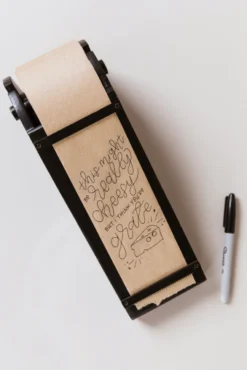 this might
be
really
cheesy
BUT I THINK YOU'RE
grate